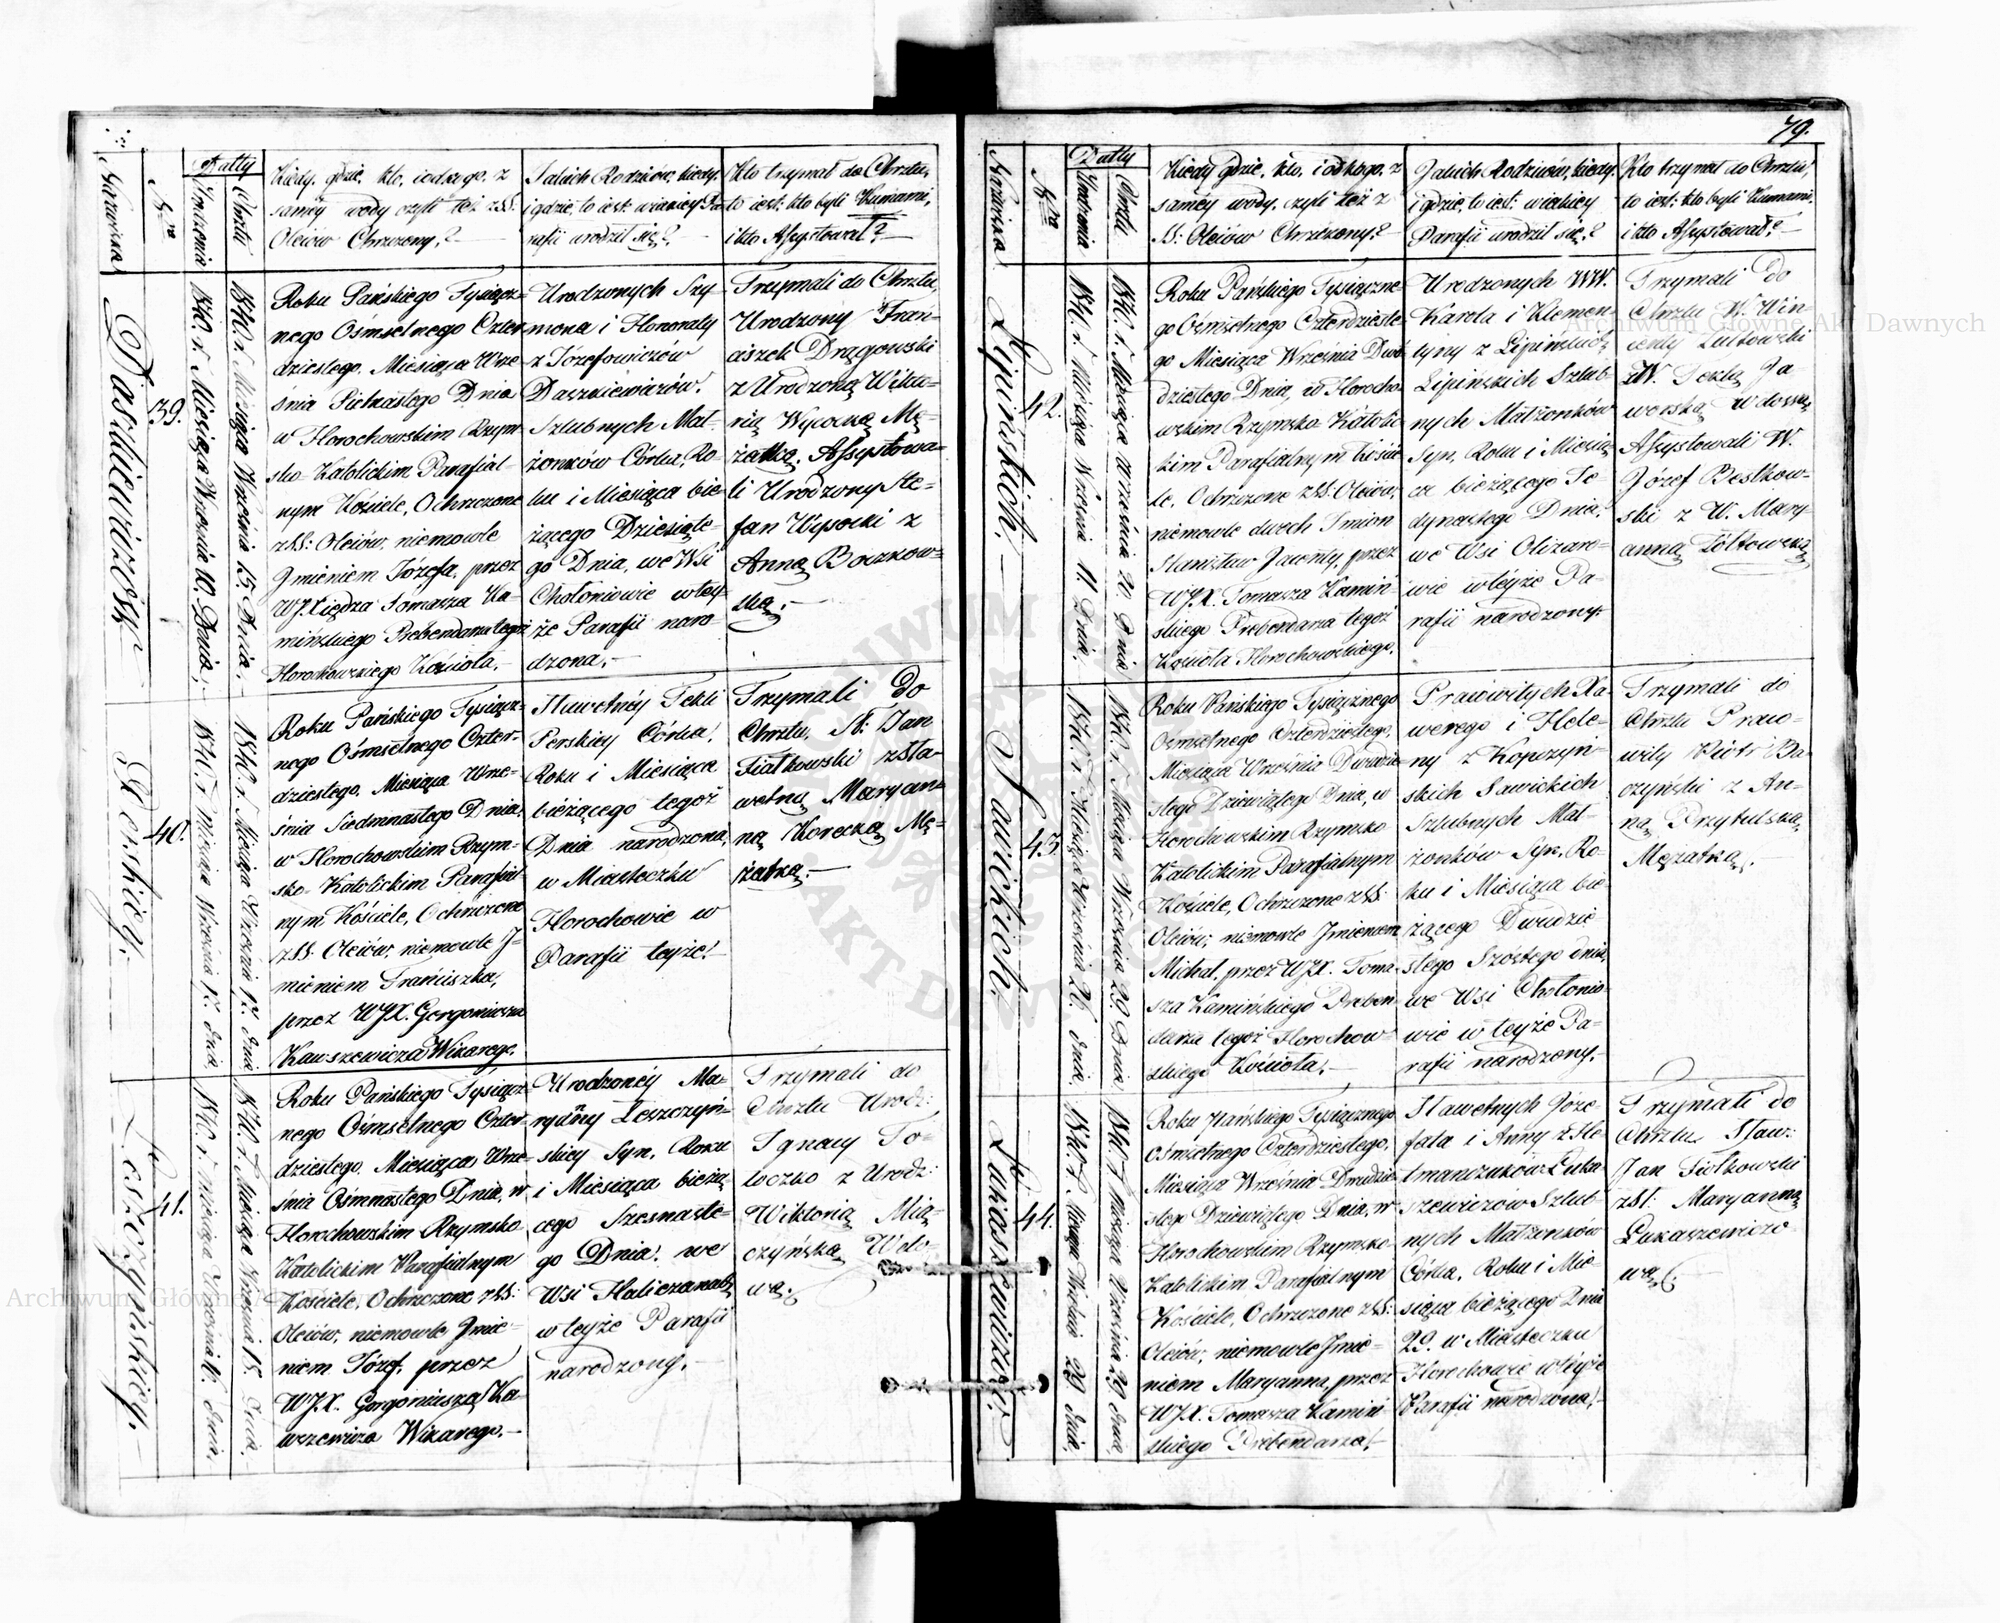 79.
Nazwiska
Nro
Datty
Urodzenia
Chrztu
Kiedy, gdzie, kto, i od kogo, z
samey wody czyli też z SS:
Oleiów Chrzczony?
Jakich Rodziców, kiedy,
i gdzie, to iest: w iakiey Pa-
rafii urodził się?
Kto trzymał do Chrztu,
to iest: kto byli Kumami,
i kto Assystował?
Daszkiewiczów
39.
1840. r. Miesiąca Września 10. Dnia,
1840. r. Miesiąca Września 15. Dnia,
Roku Pańskiego Tysiącz-
nego Ośmsetnego Czter
dziestego, Miesiąca Wrze
snia Pietnastego Dnia
w Horochowskim Rzym-
sko-Katolickim Parafial-
nym Kościele, Ochrzczone
z SS: Oleiów, niemowle
Jmieniem Józefa, przez
WJXiędza Tomasza Ka-
mińskiego Prebendarza tegoż
Horochowskiego Kościoła.-
Urodzonych Szy-
mona i Honoraty
z Józefowiczów
Daszkiewiczów,
Szlubnych Mał-
żonków Córka, Ro-
ku i Miesiąca bie-
żącego Dziesiąte-
go Dnia, we Wsi
Chołoniowie w tey-
że Parafii naro-
dzona.-
Trzymali do Chrztu,
Urodzony Fran-
ciszek Drągowski
z Urodzoną Wikto-
rią Wysocką Mę-
żatką. Assystowa-
li Urodzony Ste-
fan Wysocki z
Anną Boczkow-
ską.-
Perskiey.
40.
1840. r. Miesiąca Września 17. dnia,
1840. r. Miesiąca Września 17. dnia
Roku Pańskiego Tysiącz-
nego Ośmsetnego Czter-
dziestego, Miesiąca Wrze-
śnia Siedmnastego Dnia,
w Horochowskim Rzym-
sko-Katolickim Parafial-
nym Kościele, Ochrzczone
z SS: Oleiów, niemowle J-
mieniem Franciszka,
przez WJX. Gorgoniusza
Kawszewicza Wikarego.
Sławetnéy Tekli
Perskiey Córka,
Roku i Miesiąca
bieżącego tegoż
Dnia narodzona,
w Miasteczku
Horochowie w
Parafii teyże.-
Trzymali do
Chrztu, S: Jan
Fiałkowski z Sła-
wetną Maryan-
ną Korecką Mę-
żatką.-
Leszczyńskiey.-
41.
1840. r. Miesiąca Września 16. dnia,
1840. r. Miesiąca Września 18. dnia.-
Roku Pańskiego Tysiącz-
nego Ośmsetnego Czter-
dziestego, Miesiąca Wrze-
śnia Ośmnastego Dnia, w
Horochowskim Rzymsko
Katolickim Parafialnym
Kościele, Ochrzczone z SS:
Oleiów, niemowle Jmie-
niem Józef, przez
WJX. Gorgoniusza Ka-
wszewicza Wikarego.-
Urodzonéy Ma-
ryanny Leszczyń-
skiey Syn, Roku
i Miesiąca bieżą-
cego Szesnaste-
go Dnia, we
Wsi Haliczanach
w teyże Parafii
narodzony.-
Trzymali do
Chrztu Urodz:
Ignacy To-
łoczko z Urodz:
Wiktorią Mią-
czyńską Wdo-
wą.
Nazwiska
Nro
Datty
Urodzenia
Chrztu
Kiedy gdzie, kto, i od kogo, z
saméy wody, czyli też z
SS: Oleiów Chrzczony?
Jakich Rodziców, kiedy,
i gdzie, to iest: w iakiey
Parafii urodził się?
Kto trzymał do Chrztu,
to iest: kto byli Kumami,
i kto Assystował?
Lipińskich.-
42.
1840. r. Miesiąca Września 11. Dnia,
1840. r. Miesiąca Września 20. Dnia
Roku Pańskiego Tysiączne
go Ośmsetnego Czterdzieste-
go Miesiąca Września Dwó-
dziestego Dnia, w Horocho-
wskim Rzymsko-Katolic-
kim Parafialnym Koście
le, Ochrzczone z SS: Oleiów,
niemowle dwóch Jmion
Stanisław Jacenty, przez
WJX. Tomasza Kamiń-
skiego Prebendarza tegoż
Kościoła Horochowskiego.
Urodzonych WW.
Karola i Klemen-
tyny z Lipińskich
Lipińskich Szlub-
nych Małżonków
Syn, Roku i Miesią-
ca bieżącego Je-
dynastego Dnia,
we Wsi Olizaro-
wie w teyże Pa-
rafii narodzony.
Trzymali do
Chrztu W. Win-
centy Lutowski
z W. Teklą Ja-
worską wdową,
Assystowali W.
Józef Bestkow-
ski z W. Mary-
anną Żółtowską
Sawickich.
43.
1840. r. Miesiąca Września 26. dnia,
1840. r. Miesiąca Września 29. Dnia
Roku Pańskiego Tysiącznego
Ośmsetnego Czterdziestego,
Miesiąca Września Dwudzie
stego Dziewiątego Dnia, w
Horochowskim Rzymsko
Katolickim Parafialnym
Kościele, Ochrzczone z SS:
Oleiów, niemowle Jmieniem
Michał, przez WJX. Toma-
sza Kamińskiego Preben
darza tegoż Horochow-
skiego Kościoła.-
Prawowitych Xa-
werego i Hele-
ny z Kopczyń-
skich Sawickich
Szlubnych Mał-
żonków Syn, Ro-
ku i Miesiąca bie
żącego Dwudzie
stego Szóstego dnia,
we Wsi Chołonio-
wie w teyże Pa-
rafii narodzony.-
Trzymali do
Chrztu Prawo-
wity Piotr Ba-
czyński z An-
ną Przybulską,
Mężatką.
Łukaszewiczów.
44.
1840. r. Miesiąca Września 29 dnia,
1840. r. Miesiąca Września 29 dnia
Roku Pańskiego Tysiącznego
Ośmsetnego Czterdziestego,
Miesiąca Września Dwudzie
stego Dziewiątego Dnia, w
Horochowskim Rzymsko-
Katolickim Parafialnym
Kościele, Ochrzczone z SS:
Oleiów, niemowle Jmie-
niem Maryanna, przez
WJX. Tomasza Kamiń-
skiego Prebendarza.-
Sławetnych Józe-
fata i Anny z He-
tmanczuków Łuka-
szewiczów Szlub-
nych Małżonków
Córka, Roku i Mie-
siąca bieżącego Dnia
29. w Miasteczku
Horochowie w téyże
Parafii narodzona.-
Trzymali do
Chrztu, Sław:
Jan Fiołkowski
z Sł: Maryanną
Łukaszewiczo-
wą.
Archiwum Główne Akt Dawnych